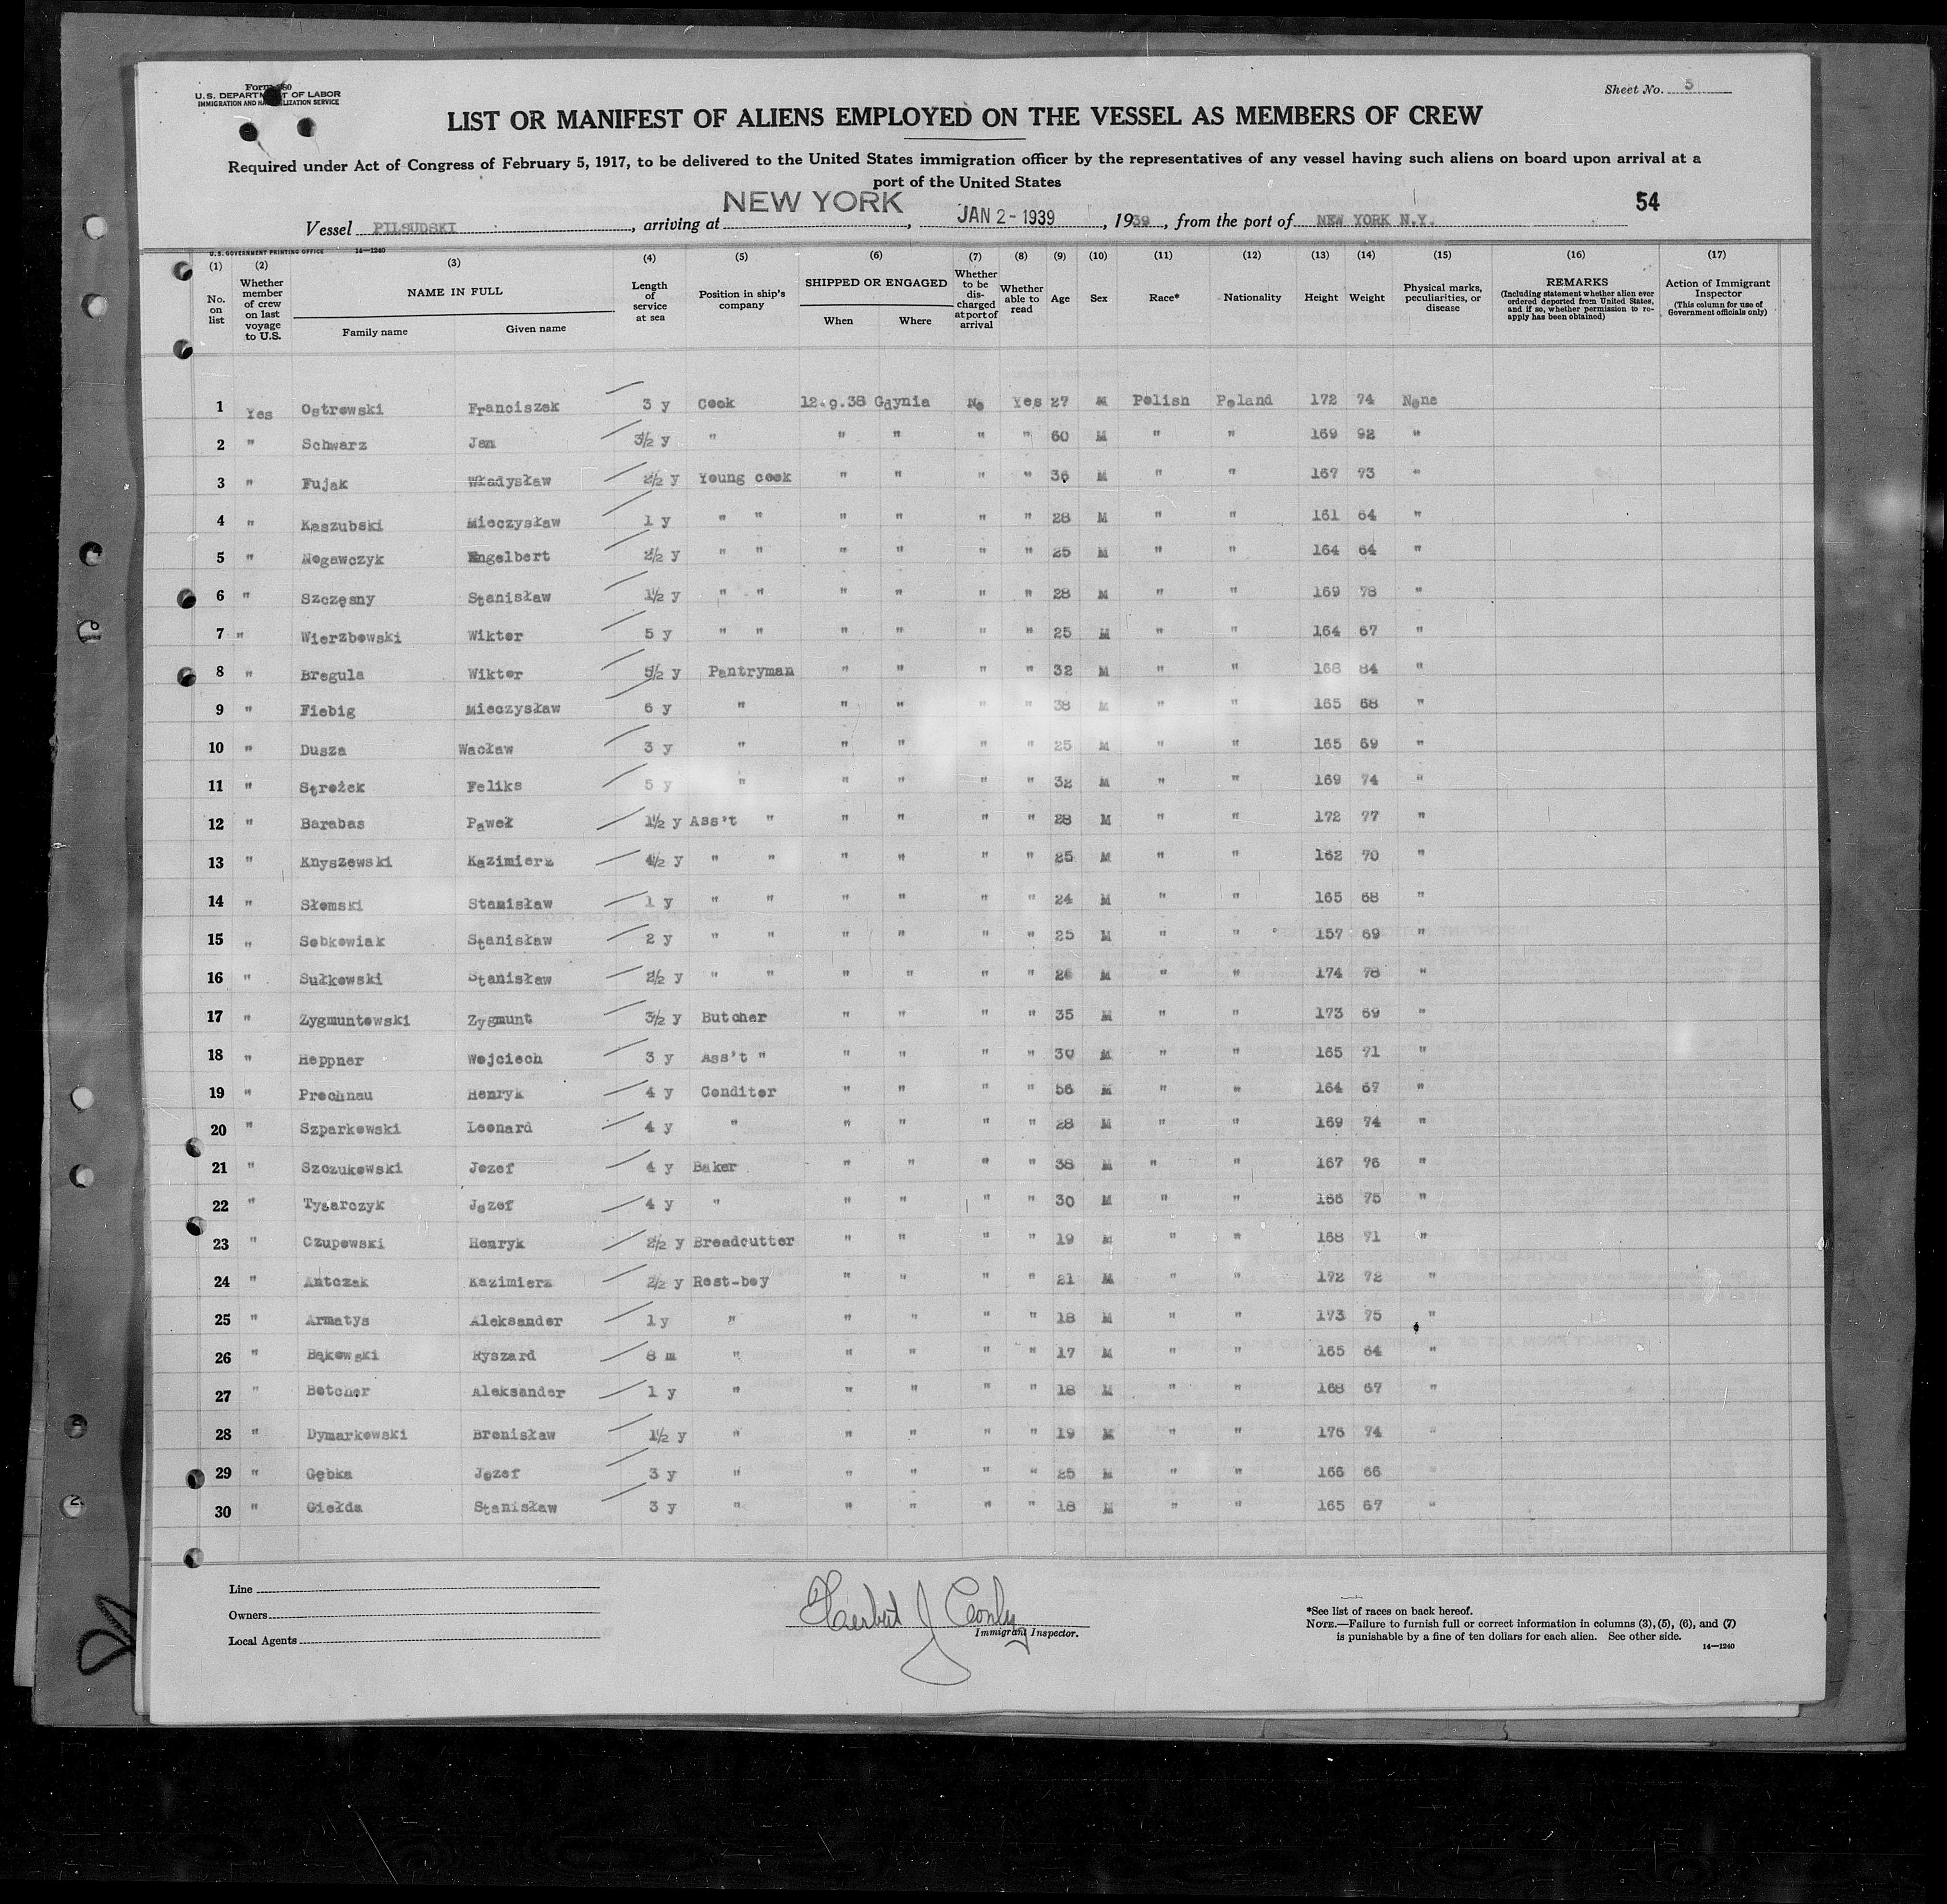 Form 680
U.S. DEPARTMENT OF LABOR
IMMIGRATION AND NATURALIZATION SERVICE
Sheet No. 5
LIST OR MANIFEST OF ALIENS EMPLOYED ON THE VESSEL AS MEMBERS OF CREW
Required under Act of Congress of February 5, 1917, to be delivered to the United States immigration officer by the representatives of any vessel having such aliens on board upon arrival at a
port of the United States
54
Vessel PILSUDSKI, arriving at NEW YORK, JAN 2 - 1939, 1939, from the port of NEW YORK N.Y.
U.S. GOVERNMENT PRINTING OFFICE 14—1240
(1) No. on list (2) Whether member of crew on last voyage to U.S. (3) NAME IN FULL Family name Given name (4) Length of service at sea (5) Position in ship's company (6) SHIPPED OR ENGAGED When Where (7) Whether to be discharged at port of arrival (8) Whether able to read (9) Age (10) Sex (11) Race* (12) Nationality (13) Height (14) Weight (15) Physical marks, peculiarities, or disease (16) REMARKS (Including statement whether alien ever ordered deported from United States, and if so, whether permission to reapply has been obtained) (17) Action of Immigrant Inspector (This column for use of Government officials only)
1 Yes Ostrowski Franciszek 3 y Cook 12.9.38 Gdynia No Yes 27 M Polish Poland 172 74 None
2 " Schwarz Jan 3½ y " " " " " 60 M " " 169 92 "
3 " Fujak Władysław 2½ y Young cook " " " " 36 M " " 167 73 "
4 " Kaszubski Mieczysław 1 y " " " " " " 28 M " " 161 64 "
5 " Nogawczyk Engelbert 2½ y " " " " " " 25 M " " 164 64 "
6 " Szczęsny Stanisław 1½ y " " " " " " 28 M " " 169 78 "
7 " Wierzbowski Wiktor 5 y " " " " " " 25 M " " 164 67 "
8 " Bregula Wiktor 5½ y Pantryman " " " " 32 M " " 168 84 "
9 " Fiebig Mieczysław 6 y " " " " " 38 M " " 165 68 "
10 " Dusza Wacław 3 y " " " " " 25 M " " 165 69 "
11 " Strożek Feliks 5 y " " " " " 32 M " " 169 74 "
12 " Barabas Paweł 1½ y Ass't " " " " " 28 M " " 172 77 "
13 " Knyszewski Kazimierz 4½ y " " " " " " 25 M " " 162 70 "
14 " Słomski Stanisław 1 y " " " " " " 24 M " " 165 68 "
15 " Sobkowiak Stanisław 2 y " " " " " " 25 M " " 157 69 "
16 " Sułkowski Stanisław 2½ y " " " " " " 26 M " " 174 78 "
17 " Zygmuntowski Zygmunt 3½ y Butcher " " " " 35 M " " 173 69 "
18 " Heppner Wojciech 3 y Ass't " " " " " 30 M " " 165 71 "
19 " Prochnau Henryk 4 y Conditor " " " " 56 M " " 164 67 "
20 " Szparkowski Leonard 4 y " " " " " 28 M " " 169 74 "
21 " Szczukowski Jozef 4 y Baker " " " " 38 M " " 167 76 "
22 " Tygarczyk Jozef 4 y " " " " " 30 M " " 166 75 "
23 " Czupowski Henryk 2½ y Breadcutter " " " " 19 M " " 168 71 "
24 " Antczak Kazimierz 2½ y Rest-boy " " " " 21 M " " 172 72 "
25 " Armatys Aleksander 1 y " " " " " 18 M " " 173 75 "
26 " Bąkowski Ryszard 8 m " " " " " 17 M " " 165 64 "
27 " Botcher Aleksander 1 y " " " " " 18 M " " 168 67 "
28 " Dymarkowski Bronisław 1½ y " " " " " 19 M " " 176 74 "
29 " Gębka Jozef 3 y " " " " " 25 M " " 166 66 "
30 " Giełda Stanisław 3 y " " " " " 18 M " " 165 67 "
Line
Owners
Local Agents
Herbert J Conly
Immigrant Inspector.
*See list of races on back hereof.
NOTE.—Failure to furnish full or correct information in columns (3), (5), (6), and (7)
is punishable by a fine of ten dollars for each alien. See other side.
14—1240